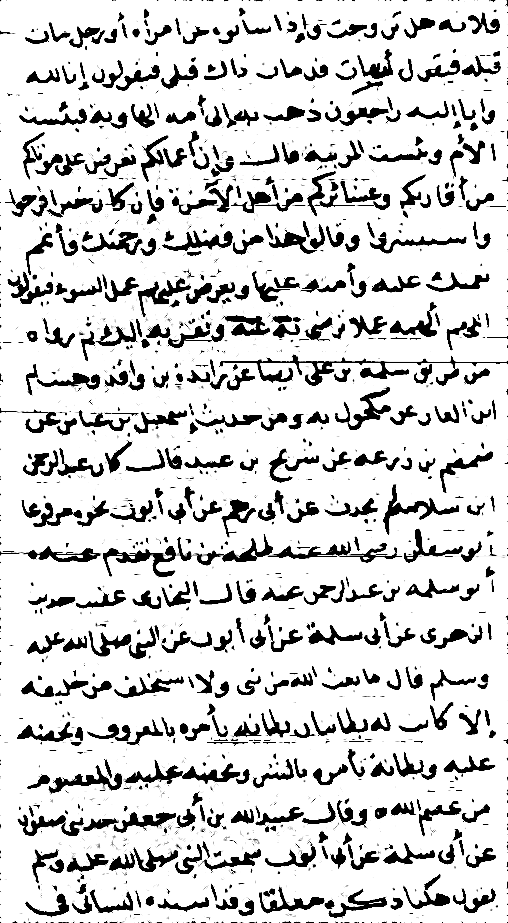 فلانه هل تزوجت وإذا سألوه عن امرأه أو رجل مات
قبله فيقول أيهات قد مات ذاك قبلي فيقولون إنا لله
وإنا إليه راجعون ذهب به إلى أمه الهاويه فبئست
الأم وبئست المربيه قال وإن أعمالكم تعرض على موتاكم
من أقاربكم وعشائركم من أهل الآخرة فإن كان خيرا فرحوا
واستبشروا وقالوا هذا من فضلك ورحمتك فأتمم
نعمتك عليه وأمته عليها ويعرض عليهم عمل السوء فيقولون
اللهم ألهمه عملا ترضى به عنه وتقربه إليك ثم رواه
من طريق سلمة بن علي أيضا عن زايدة بن واقد وهشام
ابن الغاز عن مكحول به ومن حديث إسمعيل بن عياش عن
ضمضم بن زرعه عن شريح بن عبيد قال كان عبد الرحمن
ابن سلامه يحدث عن أبي رهم عن أبي أيوب نحوه مرفوعا
أبو سفين رضى الله عنه طلحة بن نافع تقدم عنه ه
أبو سلمه بن عبد الرحمن عنه قال البخارى عقب حديث
الزهرى عن أبي سلمة عن أبي أيوب عن النبي صلى الله عليه
وسلم قال ما بعث الله من نبى ولا استخلف من خليفه
إلا كانت له بطانتان بطانه يأمره بالمعروف وتحضه
عليه وبطانة تأمره بالشر وتحضه عليه والمعصوم
من عصم الله ه وقال عبيد الله بن أبي جعفر حدثني صفوان
عن أبي سلمة عن أبي أيوب سمعت النبي صلى الله عليه وسلم
يقول هكذا ذكره معلقا وقد اسنده النسائى في